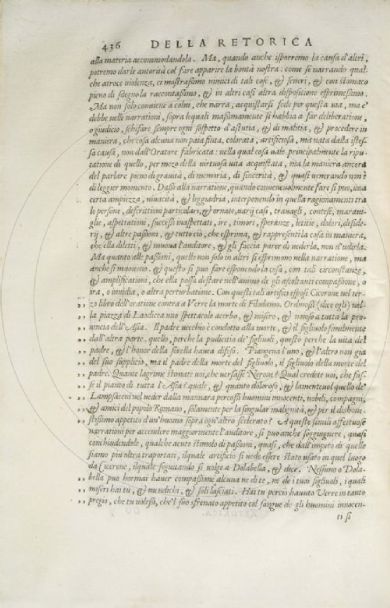 436 DELLA RETORICA
alla materia accommodandola. Ma, quando anche isporremo la causa d'altri,
potremo darle autorità col fare apparire la bontà nostra: come se narrando qual-
che atroce violenza, ci mostrassimo nimici di tali cose, & severi, & con stomaco
pieno di sdegno la raccontassimo, & in altri casi altra dispositione esprimessimo.
Ma non solo conviene à colui, che narra, acquistarsi fede per questa via, ma e'
debbe nelle narrationi, sopra le quali massimamente si habbia a far deliberatione,
o giudicio, schifare sempre ogni sospetto d'astutia, & di malitia, & procedere in
maniera, che cosa alcuna non paia finta, colorata, artificiosa, ma nata dalla stes-
sa causa, non dall'Oratore fabricata: nella qual cosa vale principalmente la ripu-
tatione di quello, per mezo della virtuosa vita acquistata, ma la maniera ancora
del parlare pieno di gravità, di memoria, di sincerità, & quasi venerando non è
di leggier momento. Dassi alla narratione, quando convenevolmente fare si può, una
certa ampiezza, vivacità, & leggiadria, interponendo in quella ragionamenti tra
le persone, descrittioni particolari, & ornate, varij casi, travagli, contese, maravi-
glie, aspettationi, successi inaspettati, ire, timori, speranze, letitie, dolori, deside-
rij, & altre passioni, & tutto ciò, che esprima, & rappresenti la cosa in maniera,
che ella diletti, & muova l'auditore, & gli faccia parer di vederla, non d'udirla.
Ma quanto alle passioni, quelle non solo in altri si esprimono nella narratione, ma
anche si muovono. & questo si può fare esponendo la cosa, con tali circostanze,
& amplificationi, che ella possa destare nell'animo de gli ascoltanti compassione, o
ira, o invidia, o altra perturbatione. Con questi tali artificij espose Cicerone nel ter-
zo libro dell'oratione contra a Verre la morte di Filodamo. Ordinossi (dice egli) nel-
la piazza di Laodicea uno spettacolo acerbo, & misero, & noioso a tutta la pro-
vincia dell'Asia. Il padre vecchio è condotto alla morte, & il figliuolo similmente
dall'altra parte, quello, perche la pudicitia de' figliuoli, questo perche la vita del
padre, & l'honor della sorella haveva difeso. Piangeva l'uno, & l'altro non già
del suo supplicio, ma il padre della morte del figliuolo, il figliuolo della morte del
padre. Quante lagrime stimate voi, che versasse Nerone? Qual credete voi, che fus-
se il pianto di tutta l'Asia? quale, & quanto doloroso, & lamentevol quello de'
Lampsaceni nel veder dalla mannara percossi huomini innocenti, nobili, compagni,
& amici del popolo Romano, solamente per la singular malignità, & per il dishone-
stissimo appetito d'un huomo sopra ogn'altro scelerato? A queste simili affettuose
narrationi per accendere maggiormente l'auditore, si può anche soggiugnere, quasi
conchiudendole, qualche acuto stimolo di passioni, quasi, che dall'impeto di quelle
siamo più oltra traportati, il quale artificio si vede essere stato usato in quel luogo
da Cicerone, il quale seguitando si volge a Dolabella, & dice. Nessuno o Dola-
bella può hormai haver compassione alcuna ne di te, ne de i tuoi figliuoli, i quali
miseri hai tu, & mendichi, & soli lasciati. Hai tu perciò havuto Verre in tanto
pregio, che tu volessi, che'l suo sfrenato appetito col sangue de gli huomini innocen-
ti si